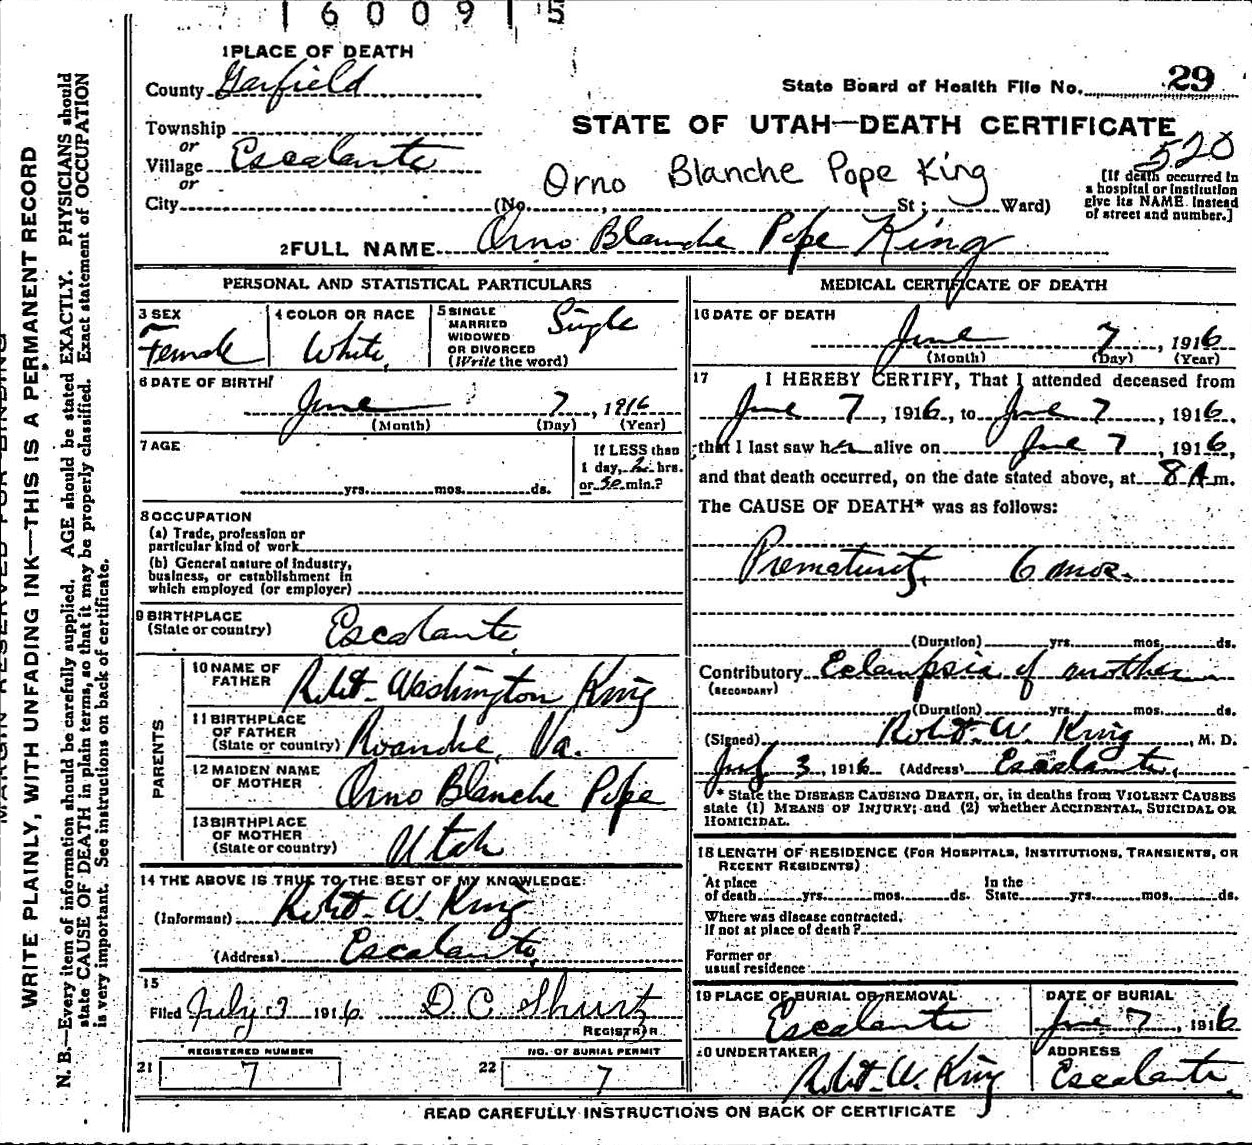 6 0 0 9 5
1 PLACE OF DEATH
County Garfield
State Board of Health File No. 29
Township
or
Village Escalante
or
City
STATE OF UTAH—DEATH CERTIFICATE
520
Orno Blanche Pope King
(No. St; Ward)
[If death occurred in
a hospital or institution
give its NAME instead
of street and number.]
2 FULL NAME Orno Blanche Pope King
PERSONAL AND STATISTICAL PARTICULARS
3 SEX
Female
4 COLOR OR RACE
White
5 SINGLE
MARRIED
WIDOWED
OR DIVORCED
(Write the word)
Single
6 DATE OF BIRTH
June 7, 1916
(Month) (Day) (Year)
7 AGE
yrs. mos. ds.
If LESS than
1 day, 2 hrs.
or 30 min.?
8 OCCUPATION
(a) Trade, profession or
particular kind of work
(b) General nature of Industry,
business, or establishment in
which employed (or employer)
9 BIRTHPLACE
(State or country)
Escalante
PARENTS
10 NAME OF
FATHER
Robt. Washington King
11 BIRTHPLACE
OF FATHER
(State or country)
Roanoke, Va.
12 MAIDEN NAME
OF MOTHER
Orno Blanche Pope
13 BIRTHPLACE
OF MOTHER
(State or country)
Utah
14 THE ABOVE IS TRUE TO THE BEST OF MY KNOWLEDGE:
(Informant) Robt. W. King
(Address) Escalante
15
Filed July 3 1916 D. C. Shurtz
REGISTRAR
REGISTERED NUMBER
21 7
NO. OF BURIAL PERMIT
22 7
MEDICAL CERTIFICATE OF DEATH
16 DATE OF DEATH
June 7, 1916
(Month) (Day) (Year)
17 I HEREBY CERTIFY, That I attended deceased from
June 7, 1916, to June 7, 1916,
that I last saw her alive on June 7, 1916,
and that death occurred, on the date stated above, at 8 A m.
The CAUSE OF DEATH* was as follows:
Prematurity. 6 mos.
(Duration) yrs. mos. ds.
Contributory Eclampsia of mother
(SECONDARY)
(Duration) yrs. mos. ds.
(Signed) Robt. W. King, M. D.
July 3, 1916 (Address) Escalante.
* State the DISEASE CAUSING DEATH, or, in deaths from VIOLENT CAUSES
state (1) MEANS OF INJURY; and (2) whether ACCIDENTAL, SUICIDAL OR
HOMICIDAL.
18 LENGTH OF RESIDENCE (FOR HOSPITALS, INSTITUTIONS, TRANSIENTS, OR
RECENT RESIDENTS)
At place
of death yrs. mos. ds.
In the
State yrs. mos. ds.
Where was disease contracted,
If not at place of death?
Former or
usual residence
19 PLACE OF BURIAL OR REMOVAL
Escalante
DATE OF BURIAL
June 7, 1916
20 UNDERTAKER
Robt. W. King
ADDRESS
Escalante
READ CAREFULLY INSTRUCTIONS ON BACK OF CERTIFICATE
WRITE PLAINLY, WITH UNFADING INK—THIS IS A PERMANENT RECORD
N. B.—Every item of information should be carefully supplied. AGE should be stated EXACTLY. PHYSICIANS should
state CAUSE OF DEATH in plain terms, so that it may be properly classified. Exact statement of OCCUPATION
is very important. See instructions on back of certificate.